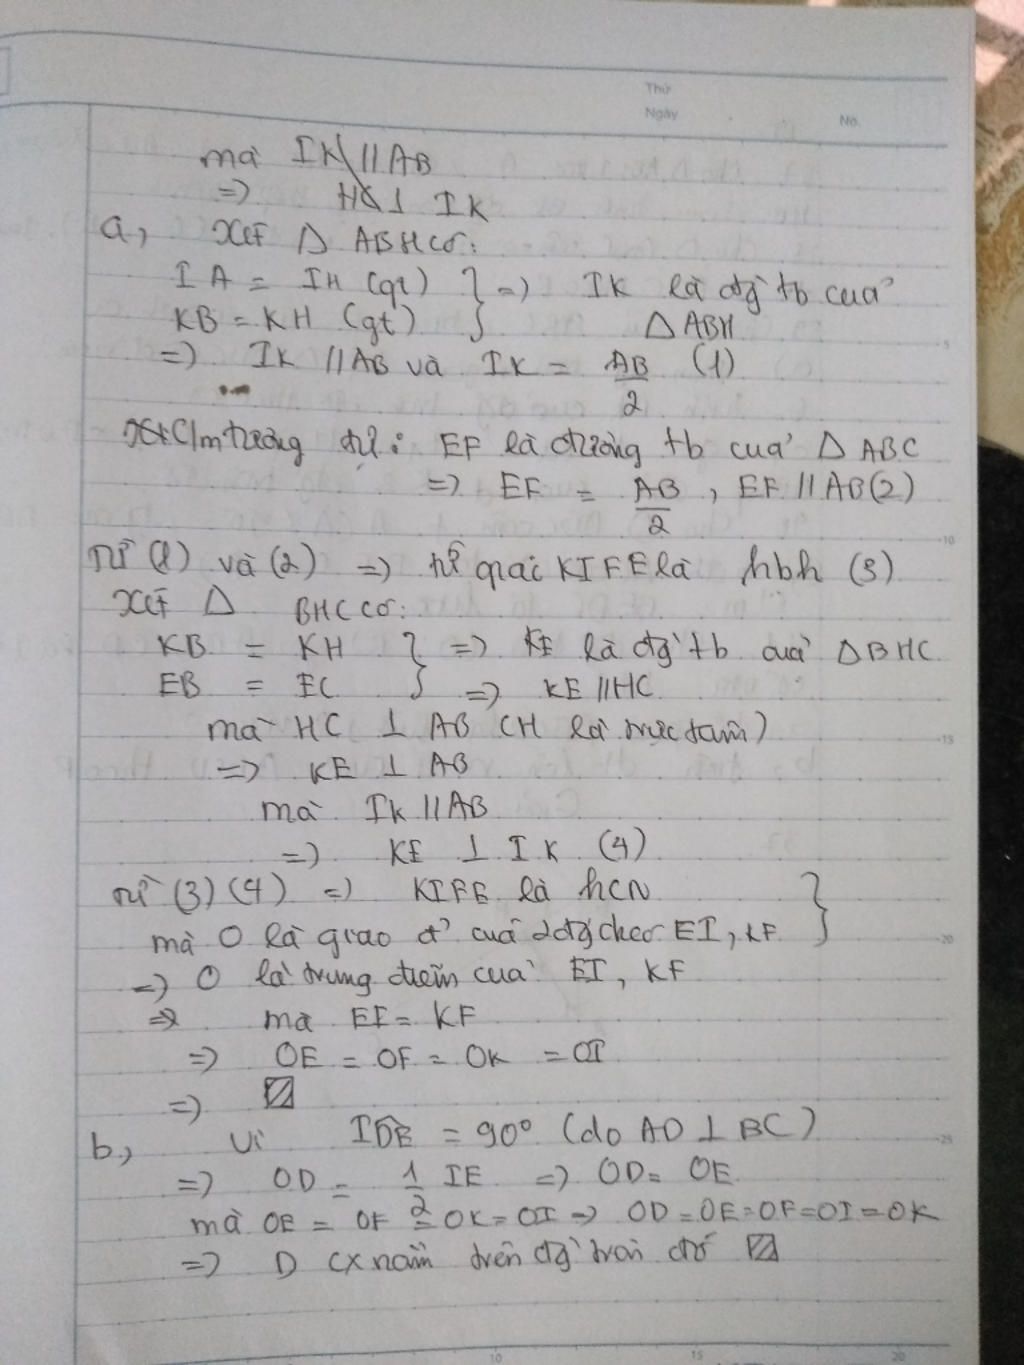 Thứ
Ngày
No.
mà IK // AB
=> HC ⊥ IK
a, Xét Δ ABH có:
IA = IH (gt) } => IK là đg` tb của
KB = KH (gt) } Δ ABH
=> IK // AB và IK = AB/2 (1)
C/m tương tự : EF là đường tb của Δ ABC
=> EF = AB/2 , EF // AB (2)
Từ (1) và (2) => tứ giác KIFE là hbh (3)
Xét Δ BHC có:
KB = KH } => KE là đg` tb của Δ BHC
EB = EC } => KE // HC
mà HC ⊥ AB (H là trực tâm)
=> KE ⊥ AB
mà IK // AB
=> KE ⊥ IK (4)
từ (3) (4) => KIFE là hcn }
mà O là giao đ' của 2 đg` chéo EI, KF }
=> O là trung điểm của EI, KF
=> mà EI = KF
=> OE = OF = OK = OI
=>
b, Vì IDE = 90° (do AD ⊥ BC)
=> OD = 1/2 IE => OD = OE
mà OE = OF = OK = OI => OD = OE = OF = OI = OK
=> D cx nằm trên đg` tròn đó
5
10
15
20
25
10
15
20